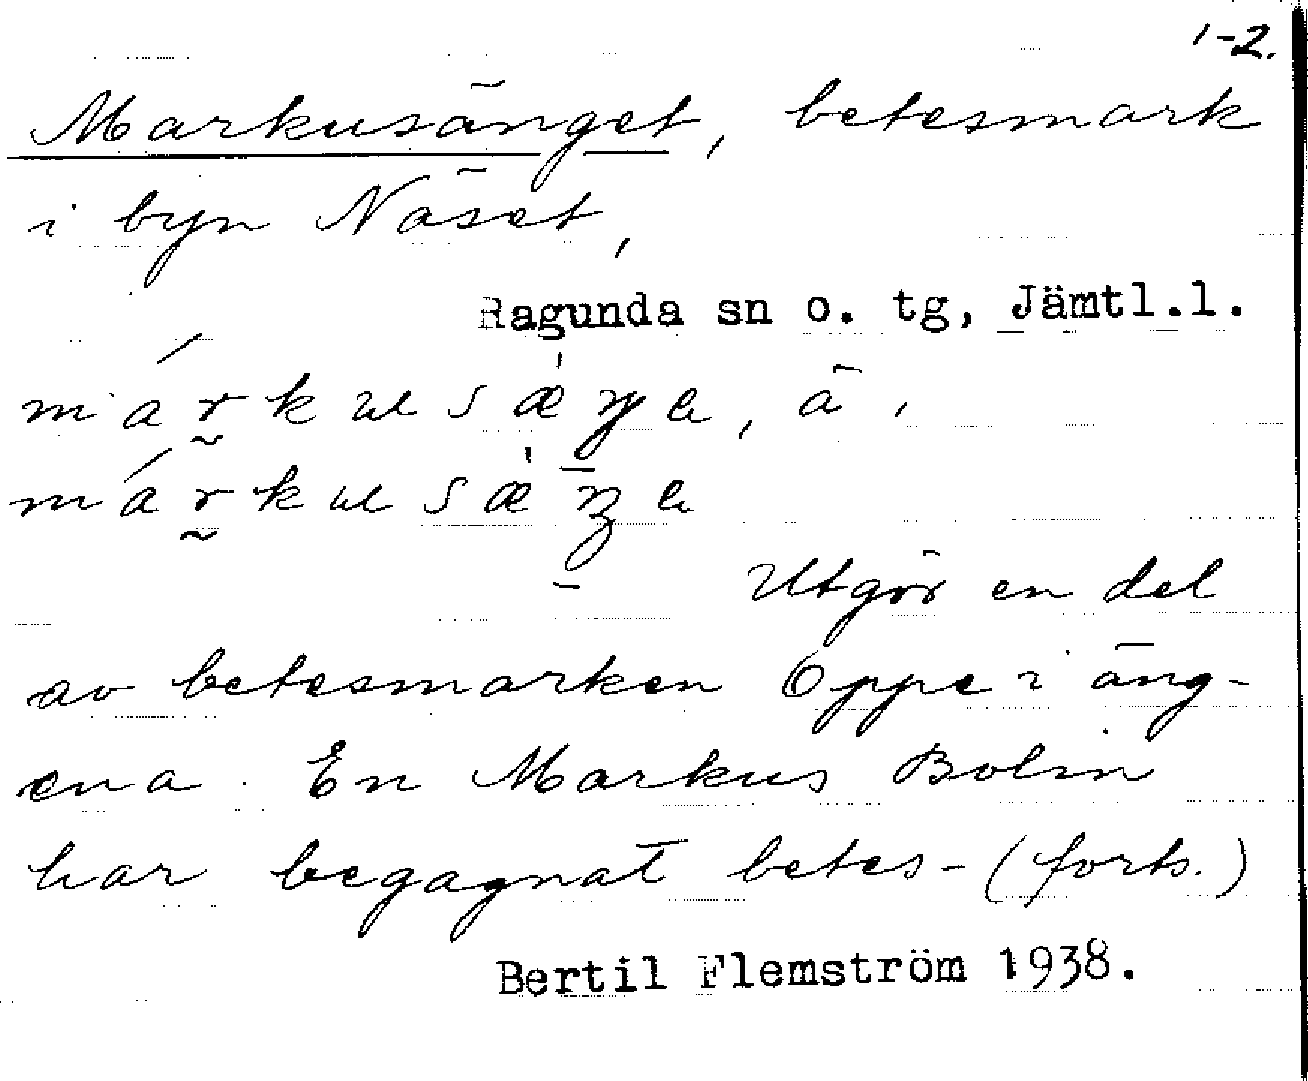 1-2.
Markusänget, betesmark
i byn Näset,
Ragunda sn o. tg, Jämtl.l.
Utgör en del
av betesmarken Oppe i äng-
ena. En Markus Bolin
har begagnat betes- (forts.)
Bertil Flemström 1938.